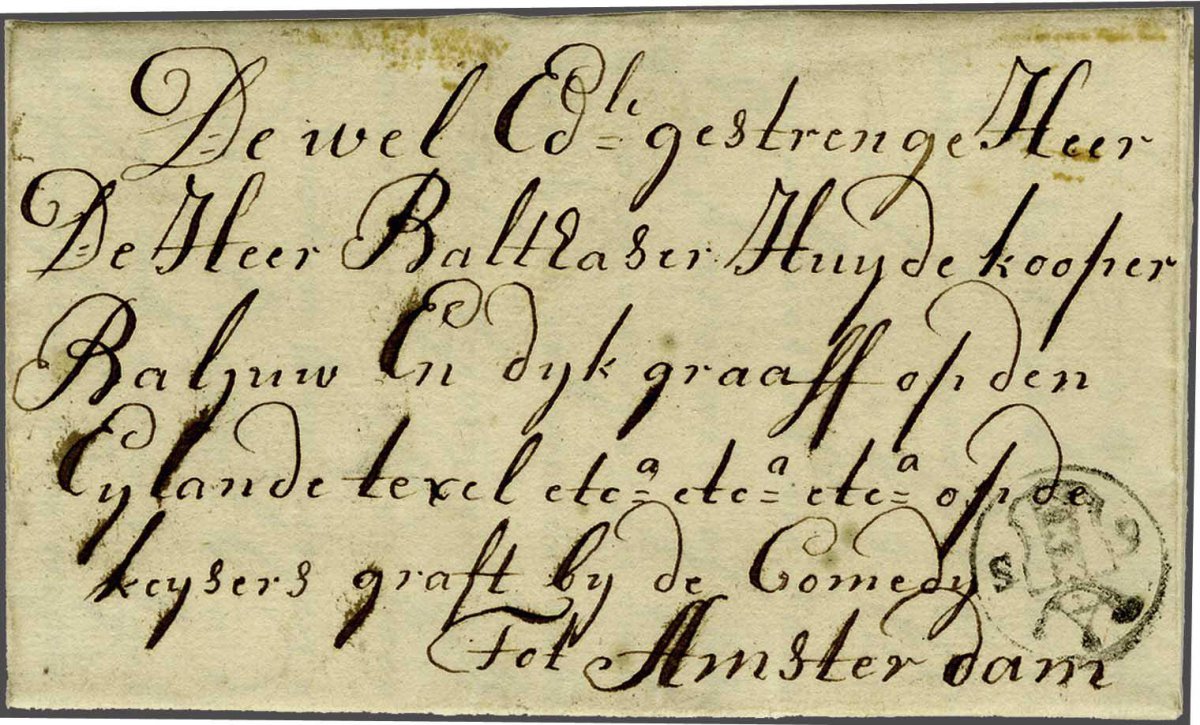 De wel Edle gestrenge Heer
De Heer Balthaser Huydekooper
Baljuw En dyk graaff op den
Eylande texel etca etca etca op de
keysers graft by de Comedy
Tot Amsterdam